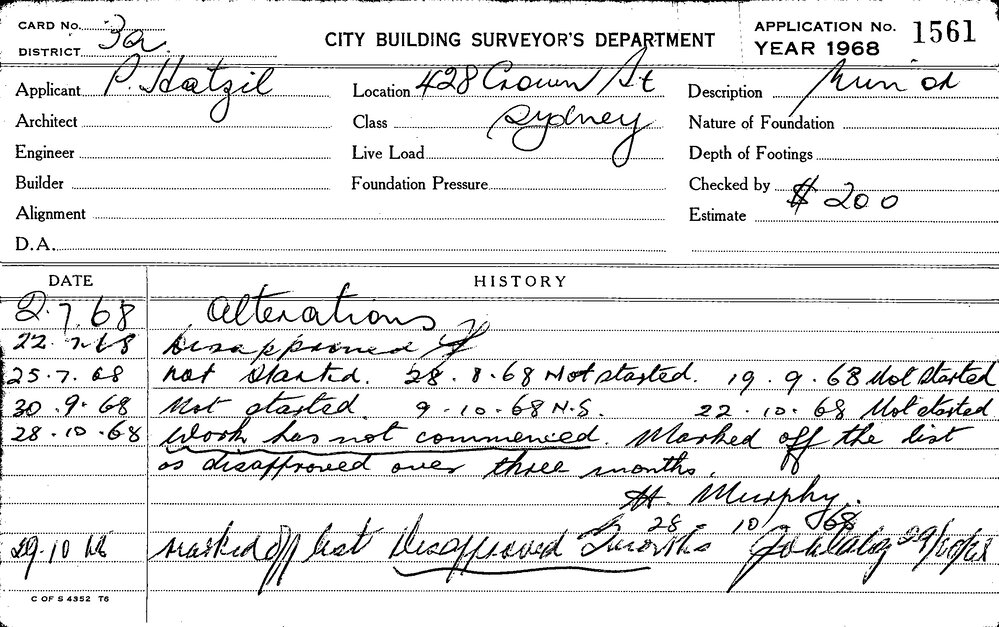 CARD No. 3a.
DISTRICT
CITY BUILDING SURVEYOR'S DEPARTMENT
APPLICATION No. 1561
YEAR 1968
Applicant P. Hatzil
Location 428 Crown St
Description
Architect
Class Sydney
Nature of Foundation
Engineer
Live Load
Depth of Footings
Builder
Foundation Pressure
Checked by
Alignment
Estimate $ 200
D.A.
DATE HISTORY
2.7.68 Alterations
22.7.68 Disapproved
25.7.68 not started. 28.8.68 Not started. 19.9.68 Not started
30.9.68 Not started. 9-10-68 N.S. 22.10.68 Not started
28.10.68 Work has not commenced. Marked off the list
as disapproved over three months.
H. Murphy.
28-10-68
29.10.68 marked off list Disapproved 3 months 29/10/68
C OF S 4352 T6